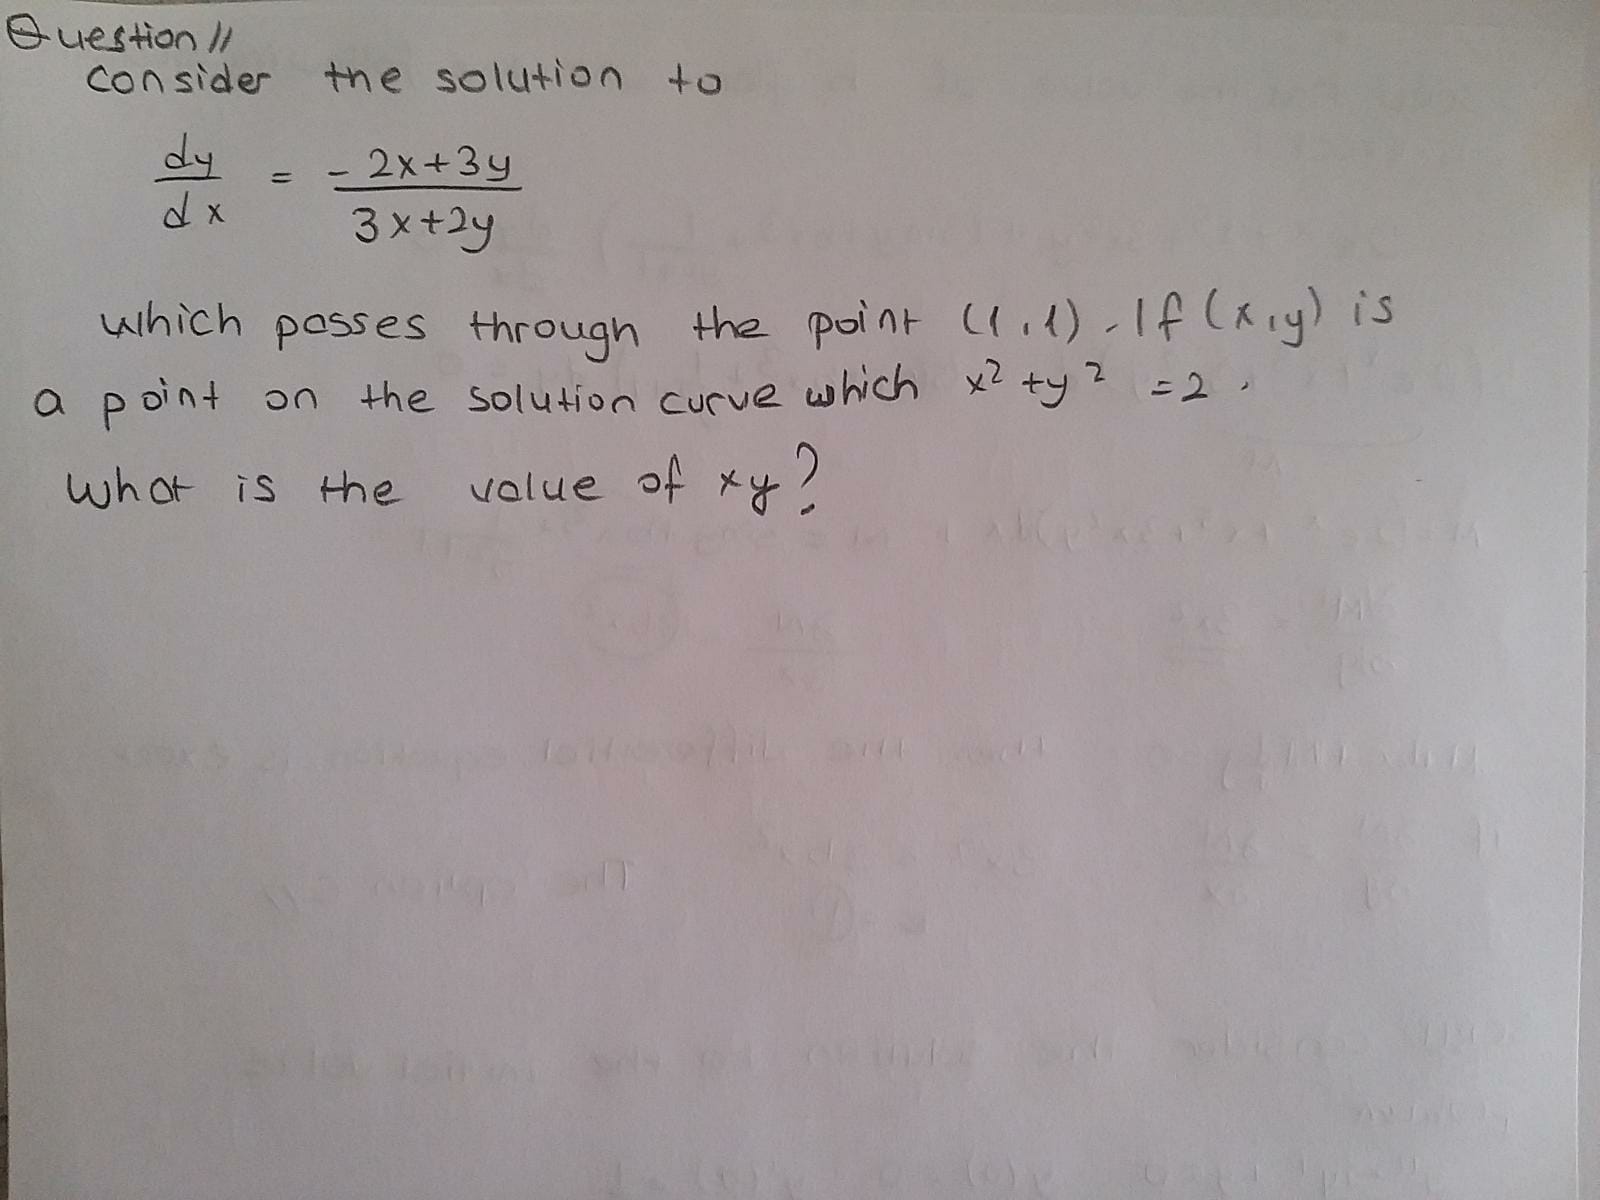 Question 11
consider the solution to
dy/dx = - 2x+3y / 3x+2y
which passes through the point (1,1). If (x,y) is
a point on the solution curve which x² +y² =2.
What is the value of xy?